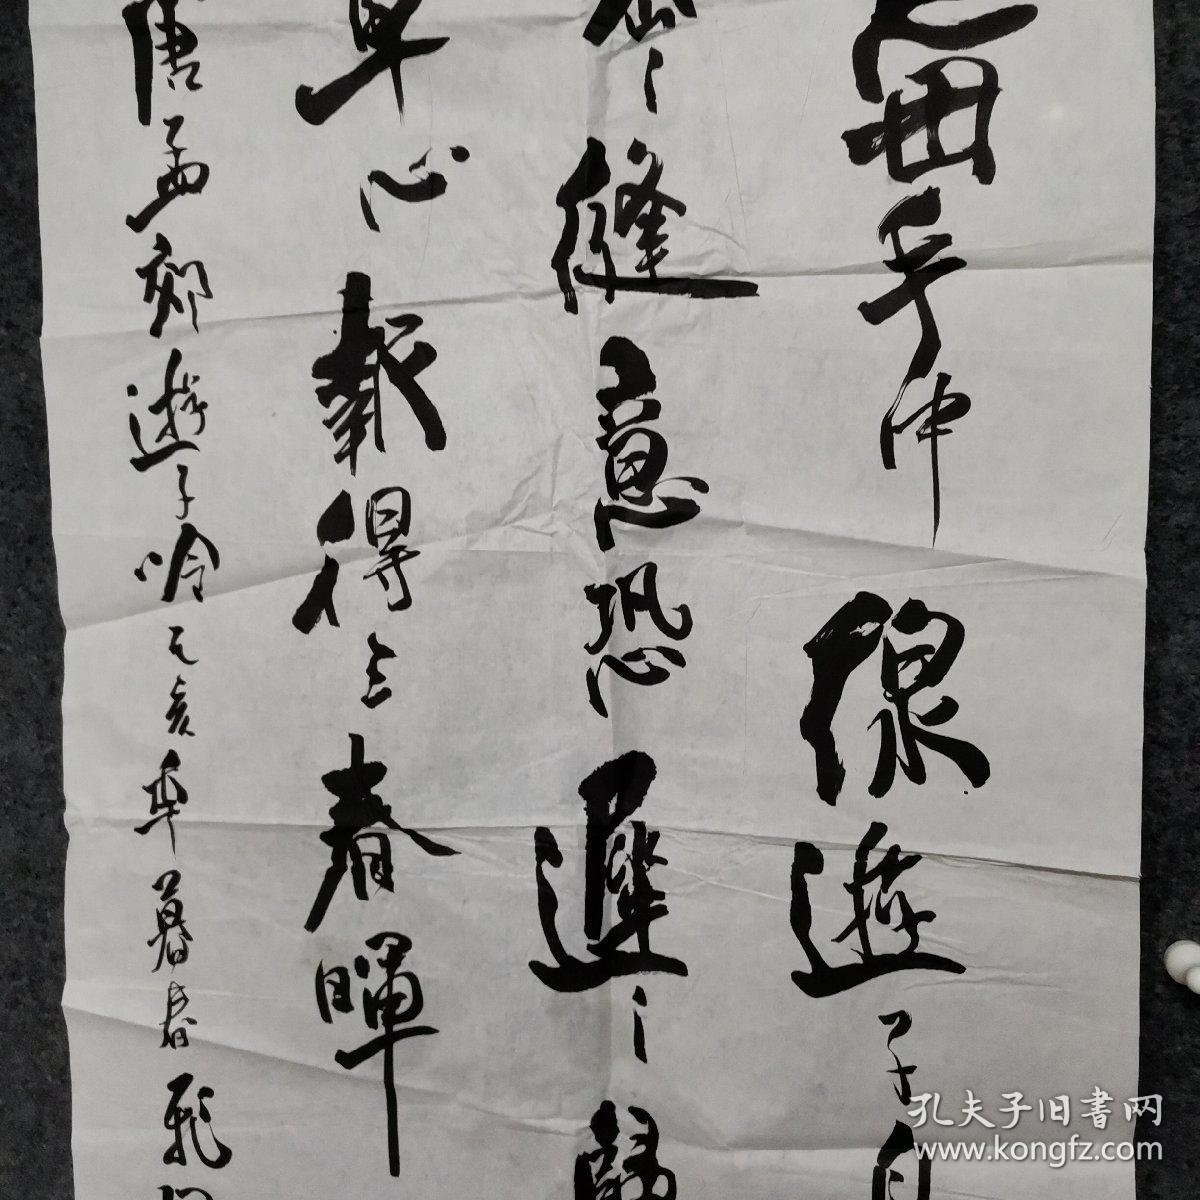 慈母手中線遊子身
密〻縫意恐遲〻歸
草心報得三春暉
唐孟郊遊子吟己亥年暮春
孔夫子旧書网
www.kongfz.com